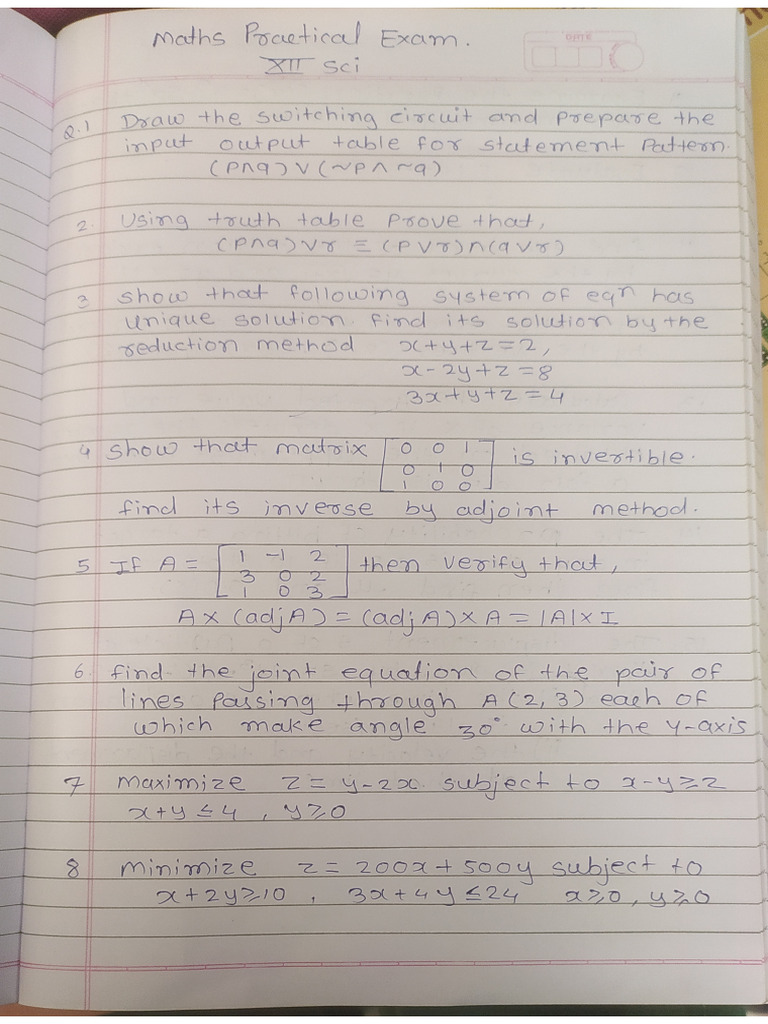 DATE
Maths Practical Exam.
XII Sci
Q.1 Draw the switching circuit and prepare the
input output table for statement pattern.
(p∧q)∨(~p∧~q)
2. Using truth table prove that,
(p∧q)∨r ≡ (p∨r)∩(q∨r)
3 Show that following system of eqⁿ has
unique solution. find its solution by the
reduction method x+y+z=2,
x-2y+z=8
3x+y+z=4
4 Show that matrix [0 0 1
0 1 0
1 0 0] is invertible.
find its inverse by adjoint method.
5 If A = [1 -1 2
3 0 2
1 0 3] then verify that,
A×(adjA)=(adjA)×A=|A|×I
6. find the joint equation of the pair of
lines passing through A(2,3) each of
which make angle 30° with the y-axis
7 maximize z=y-2x. subject to x-y≥2
x+y≤4, y≥0
8 minimize z=200x+500y subject to
x+2y≥10, 3x+4y≤24 x≥0, y≥0